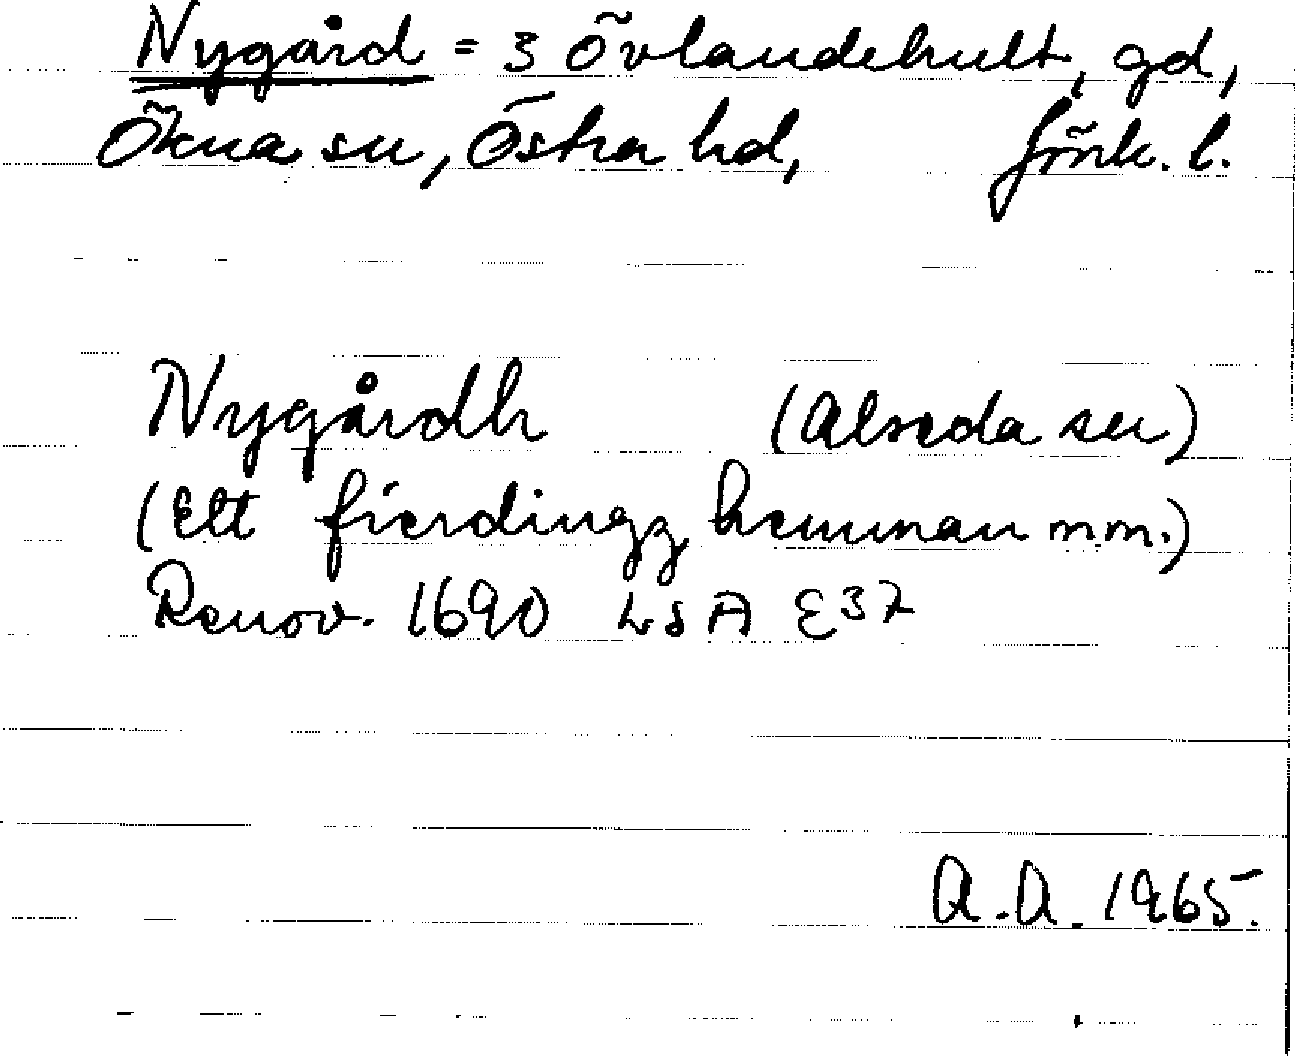 Nygård = 3 Övlandehult, gd,
Ökna sn, Östra hd, Jönk. l.
Nygårdh (Alseda sn)
(Ett fierdingz hemman m.m.)
Renov. 1690 LSA E37
A.A. 1965.